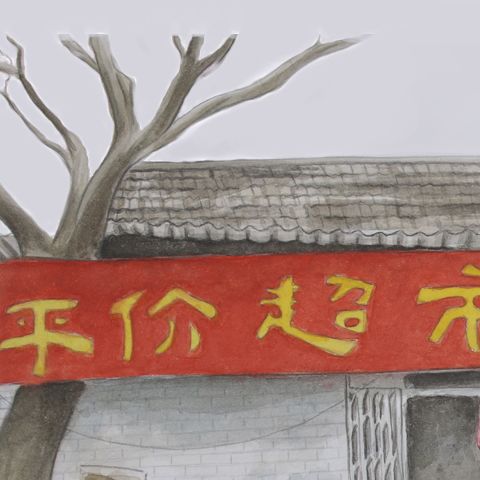 平价超市